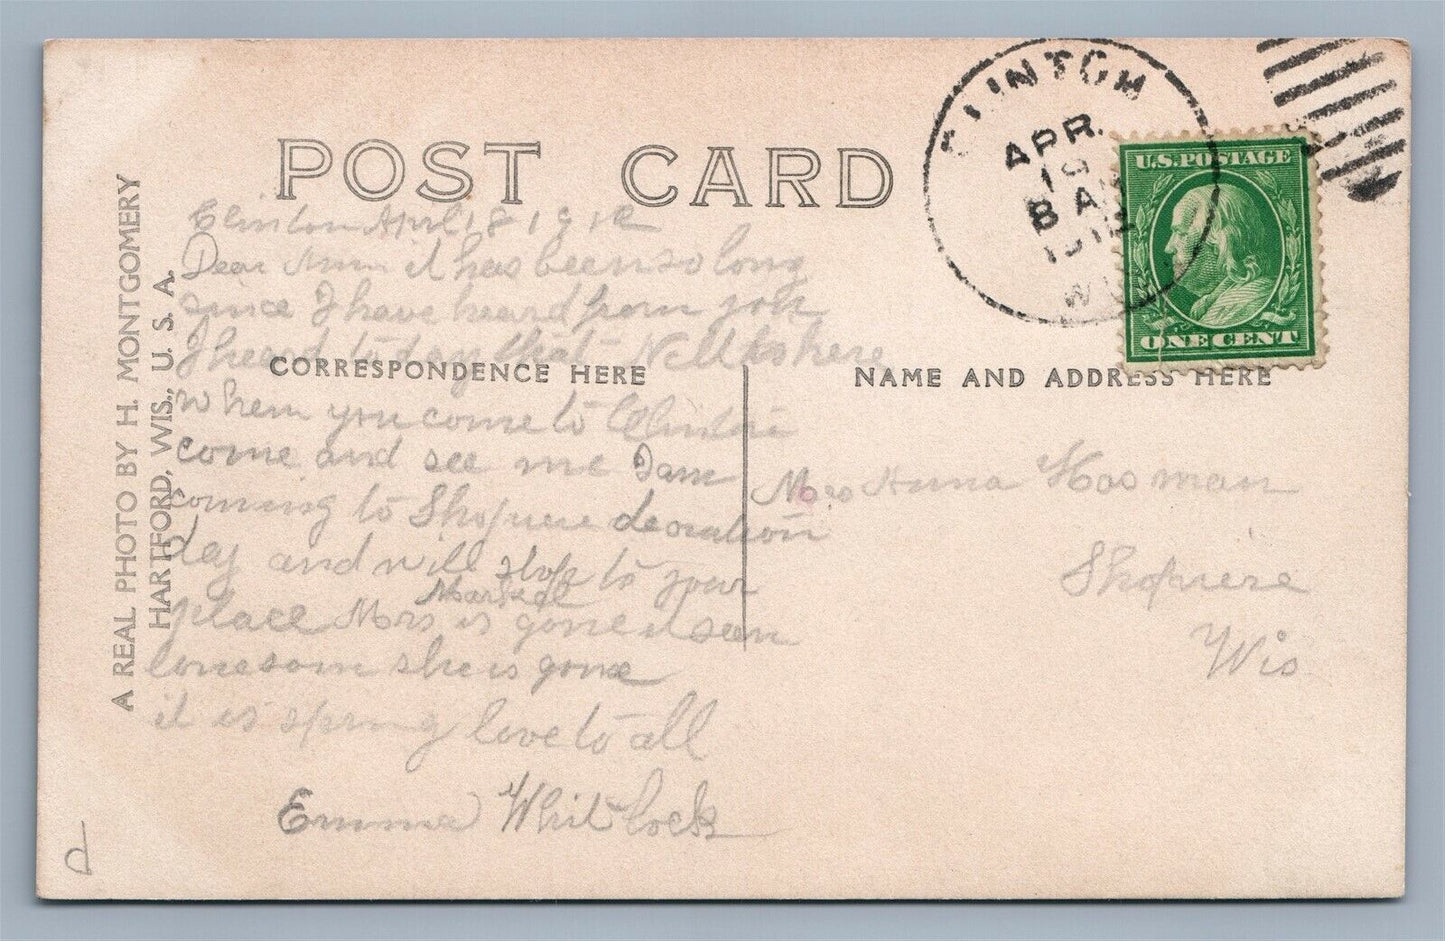 POST CARD
CLINTON
APR.
19
8 AM
1912
WIS.
U.S. POSTAGE
ONE CENT
A REAL PHOTO BY H. MONTGOMERY
HARTFORD, WIS., U. S. A.
CORRESPONDENCE HERE
NAME AND ADDRESS HERE
Clinton April 18 1912
Dear it has been so long
since I have heard from you
I heard to day that Nell is here
when you come to Clinton
come and see me I am
coming to Shopiere decoration
day and will stop to your
place Mrs is gone it seem
lonesom she is gone
it is spring love to all
Emma Whitlock
Mrs Anna Hosman
Shopiere
Wis